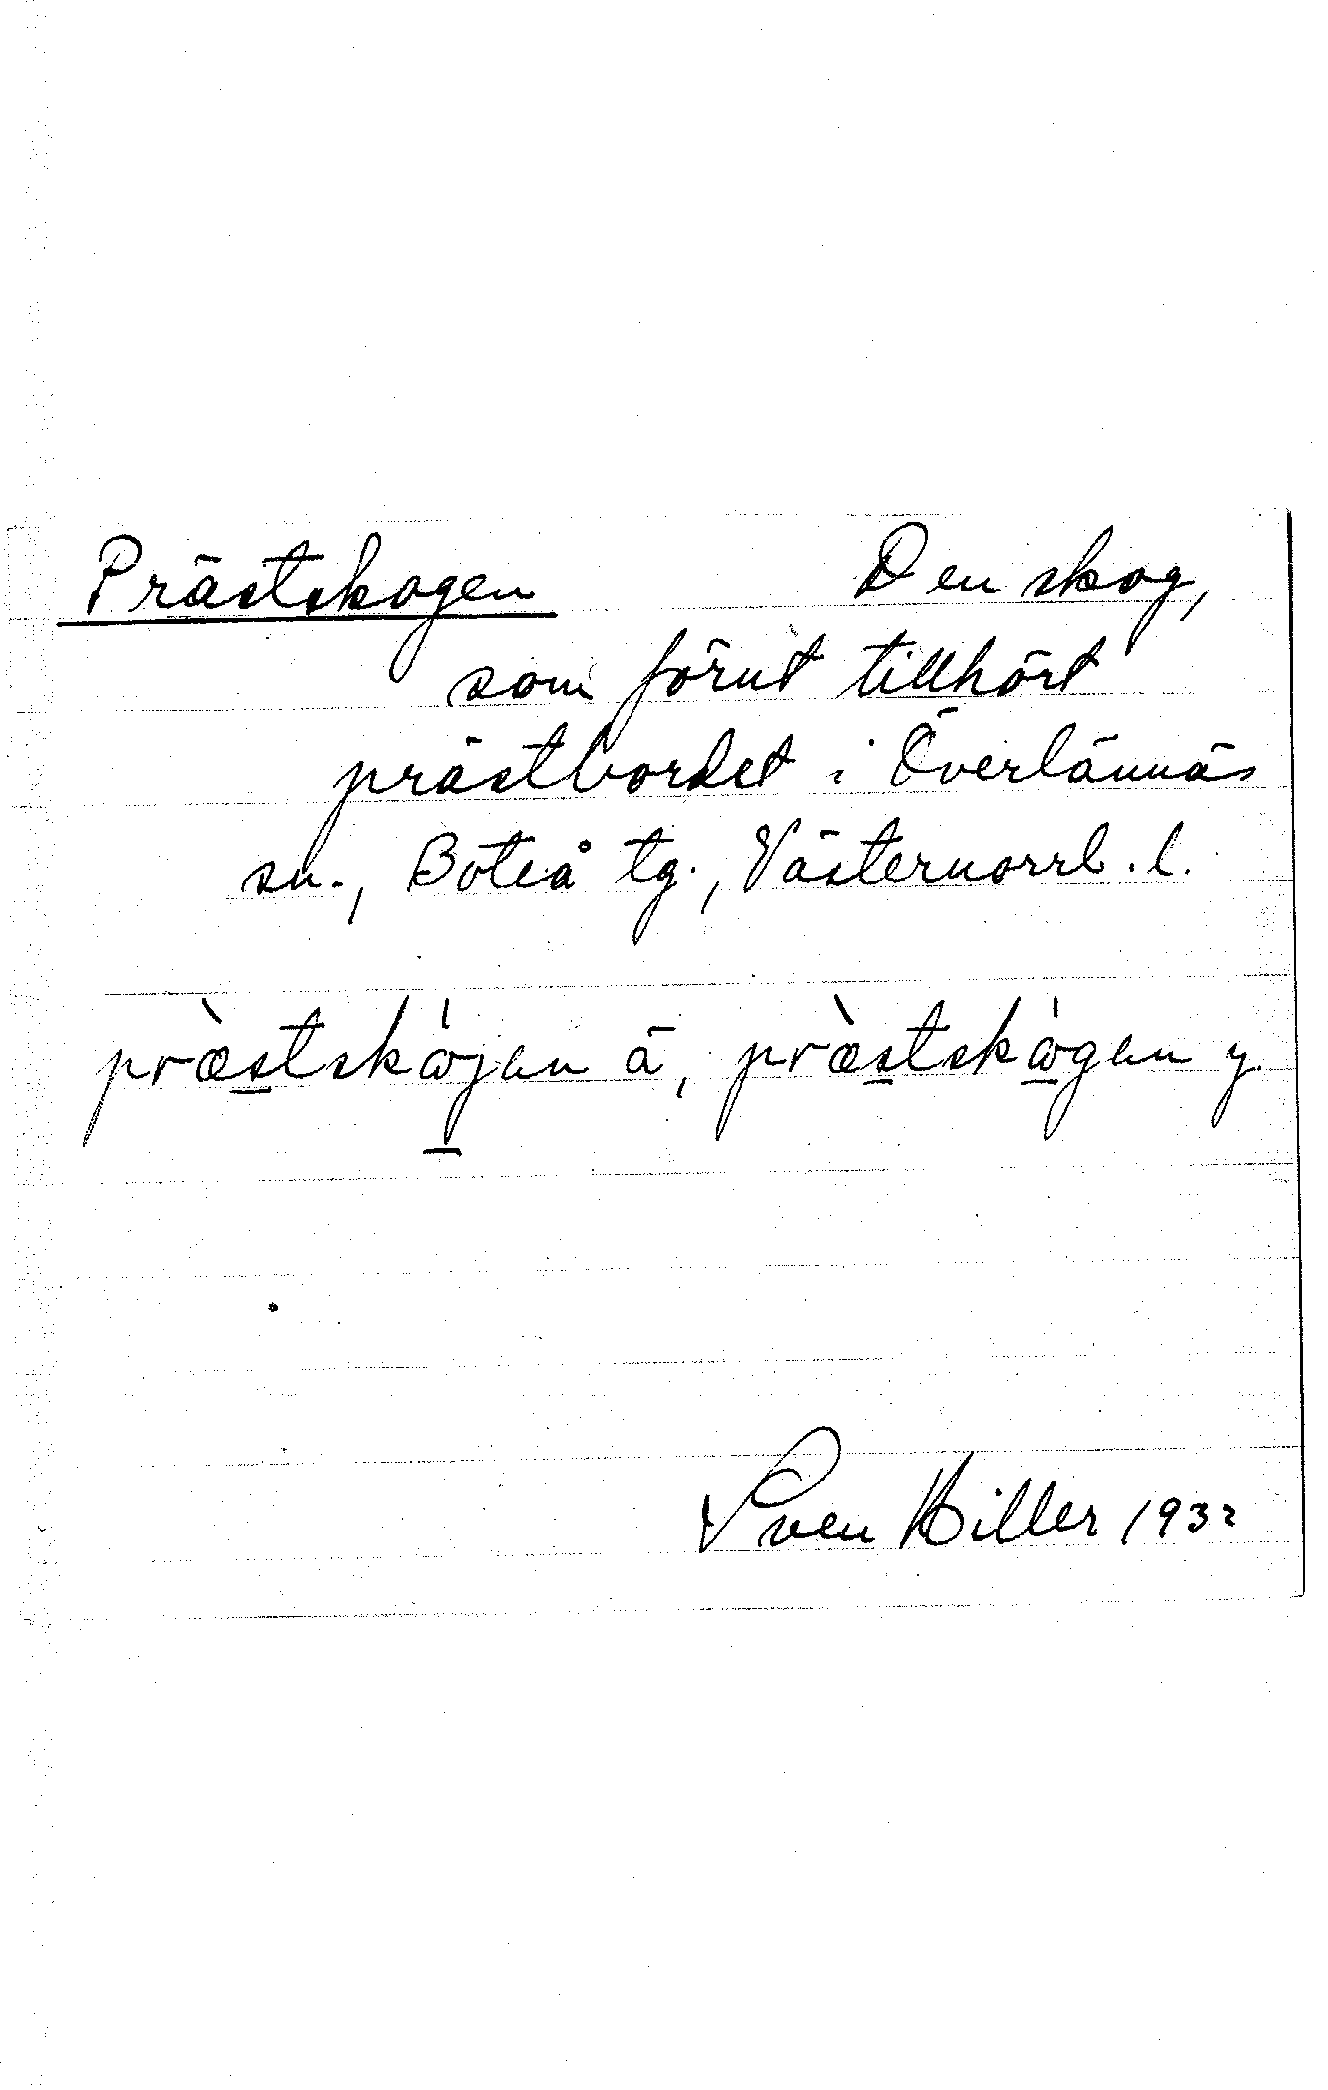 Prästskogen Den skog,
som förut tillhört
prästbordet i Överlännäs
sn., Boteå tg., Västernorrl. l.
præ̀stskώjen ä, præ̀stskώgen y.
Sven Hiller 1932